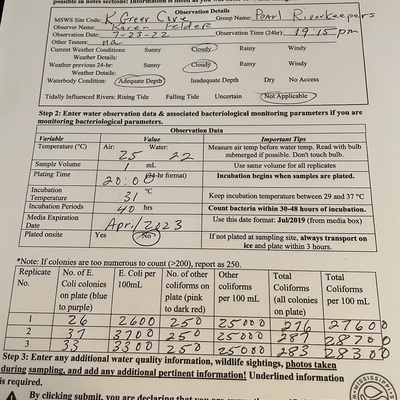 possible in notes sections: Information is listed as you will
Observation Details
MSWS Site Code: K Greer Cive Group Name: Pearl Riverkeepers
Observer Name: Karen Felder
Observation Date: 7-23-22 Observation Time (24hr) 19:15 pm
Other Testers: na
Current Weather Conditions: Sunny Cloudy Rainy Windy
Weather Details:
Weather previous 24-hr: Sunny Cloudy Rainy Windy
Weather Details:
Waterbody Condition: Adequate Depth Inadequate Depth Dry No Access
Tidally Influenced Rivers: Rising Tide Falling Tide Uncertain Not Applicable
Step 2: Enter water observation data & associated bacteriological monitoring parameters if you are
monitoring bacteriological parameters.
Observation Data
Variable Value Important Tips
Temperature (°C) Air: 25 Water: 22 Measure air temp before water temp. Read with bulb
submerged if possible. Don't touch bulb.
Sample Volume 1 mL Use same volume for all replicates
Plating Time 20:00 (24-hr format) Incubation begins when samples are plated.
Incubation
Temperature 31 °C Keep incubation temperature between 29 and 37 °C
Incubation Periods 40 hrs Count bacteria within 30-48 hours of incubation.
Media Expiration
Date April/2023 Use this date format: Jul/2019 (from media box)
Plated onsite Yes No If not plated at sampling site, always transport on
ice and plate within 3 hours.
*Note: If colonies are too numerous to count (>200), report as 250.
Replicate
No. No. of E.
Coli colonies
on plate (blue
to purple) E. Coli per
100mL No. of other
coliforms on
plate (pink
to dark red) Other
coliforms
per 100 mL Total
Coliforms
(all colonies
on plate) Total
Coliforms
per 100 mL
1 26 2600 250 25000 276 27600
2 37 3700 250 25000 287 28700
3 33 3300 250 25000 283 28300
Step 3: Enter any additional water quality information, wildlife sightings, photos taken
during sampling, and add any additional pertinent information! Underlined information
is required.
By clicking submit, you are declaring that you are
MISSISSIPPI